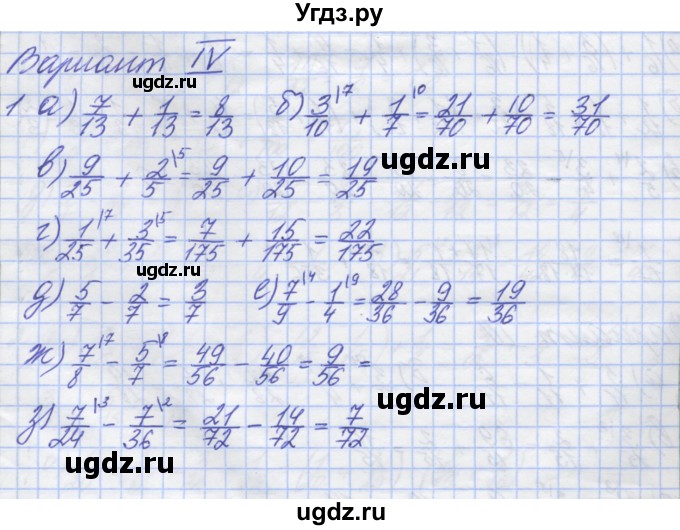 Угдз.ру
Вариант IV
ugdz.ru
1 а) 7/13 + 1/13 = 8/13 б) 3/10 \7 + 1/7 \10 = 21/70 + 10/70 = 31/70
ugdz.ru
ugdz.ru
в) 9/25 + 2/5 \5 = 9/25 + 10/25 = 19/25
ugdz.ru
г) 1/25 \7 + 3/35 \5 = 7/175 + 15/175 = 22/175
ugdz.ru
д) 5/7 - 2/7 = 3/7 е) 7/9 \4 - 1/4 \9 = 28/36 - 9/36 = 19/36
ж) 7/8 \7 - 5/7 \8 = 49/56 - 40/56 = 9/56 =
ugdz.ru
з) 7/24 \3 - 7/36 \2 = 21/72 - 14/72 = 7/72
ugdz.ru
ugdz.ru
ugdz.ru
ugdz.ru